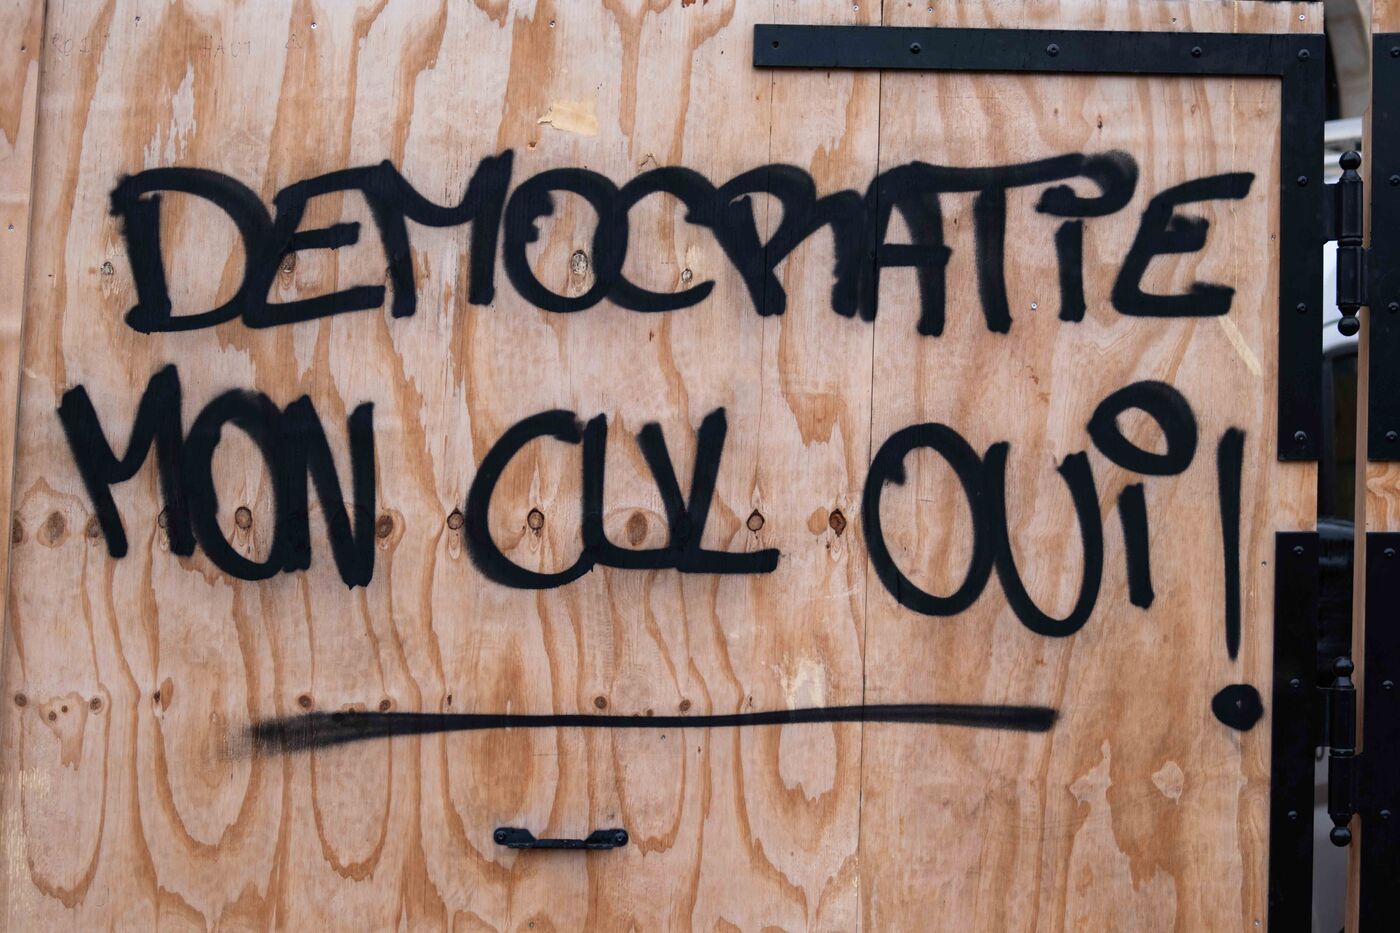 DEMOCRATiE
MON CUL OUi !